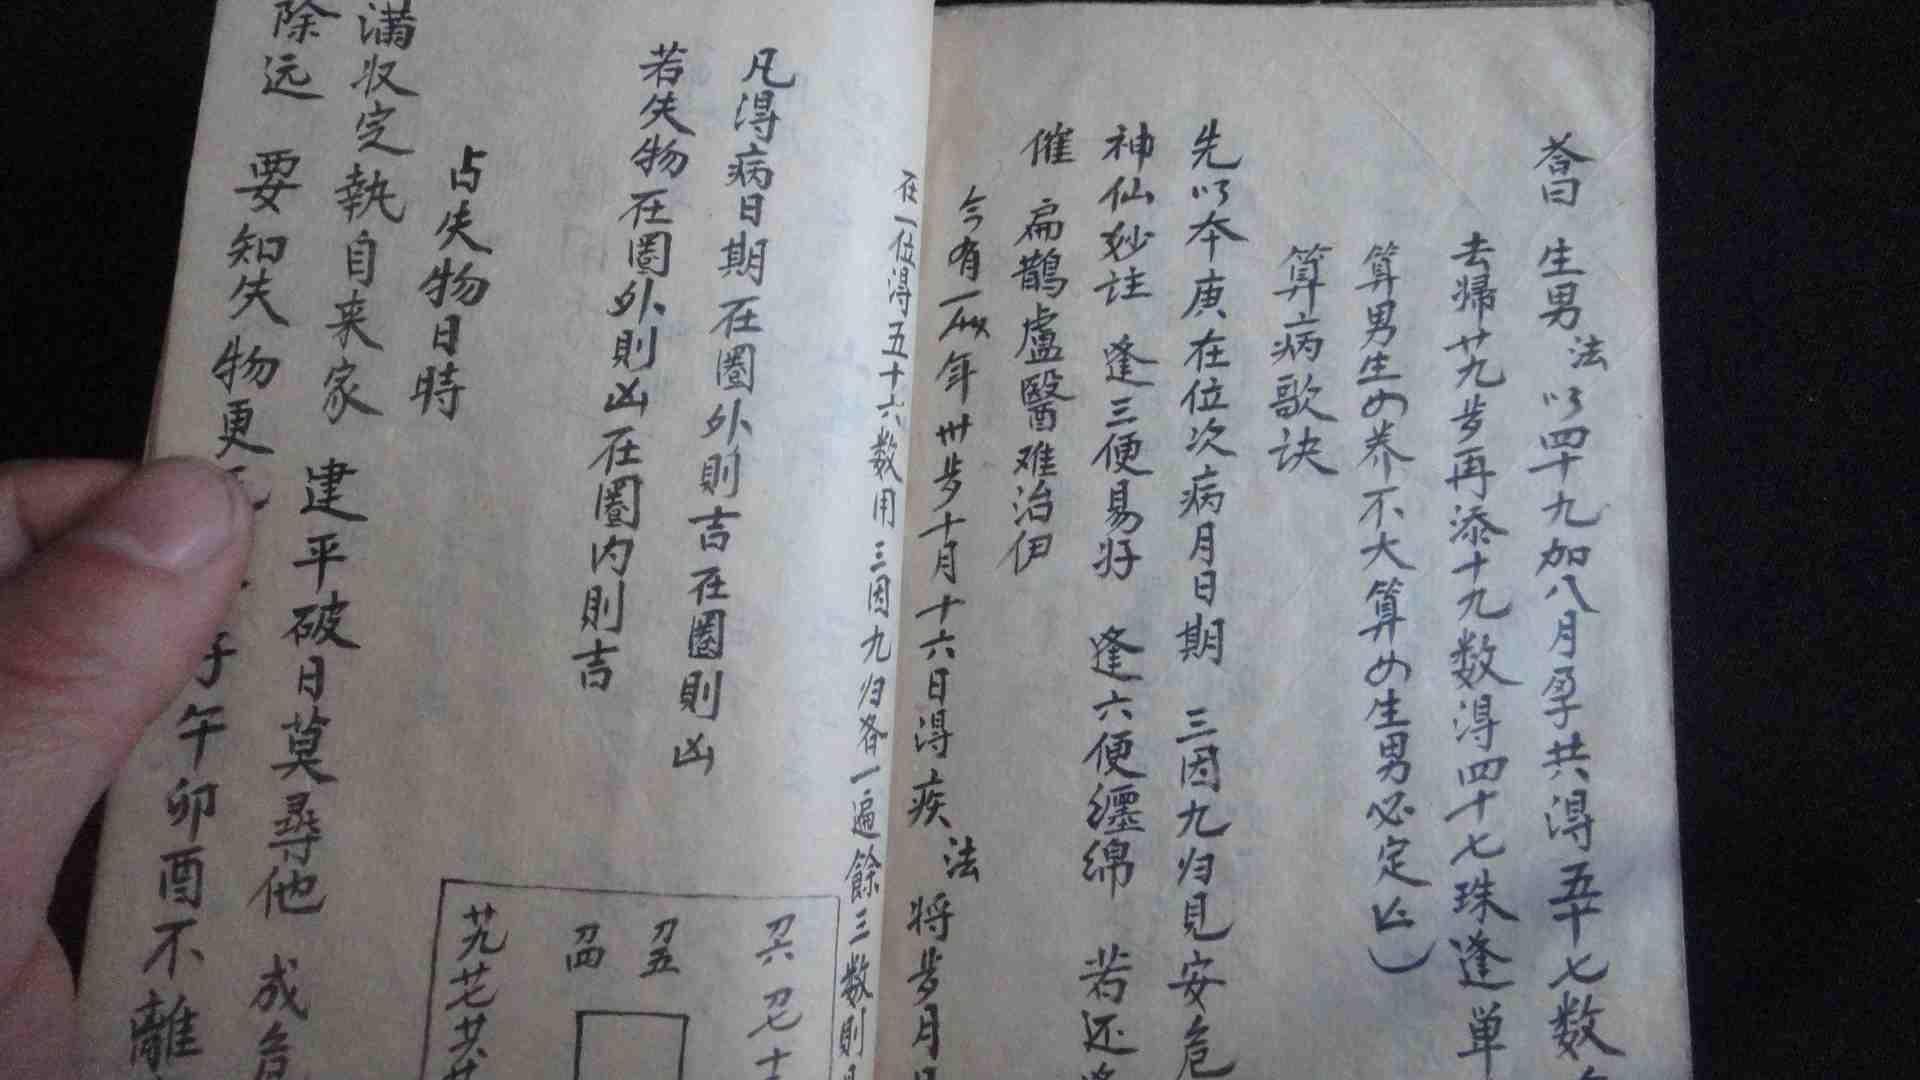 荅曰 生男法以四十九加八月孕共得五十七数
去歸廿九步再添十九数得四十七珠逢単
算男生女养不大算女生男必定亡
算病歌诀
先以本庚在位次病月日期 三因九归見安危
神仙妙註 逢三便易好 逢六便纒綿 若还逢
催 扁鵲盧醫难治伊
今有一人年卅步十月十六日得疾法将步月日
在一位得五十六数用三因九归各一遍餘三数則
凡得病日期在圈外則吉在圈則凶
若失物在圈外則凶在圈内則吉
占失物日時
满收定執自来家 建平破日莫尋他 成危
除远 要知失物更 子午卯酉不離
刀六 刀七
刀五
刀四
艽 芢